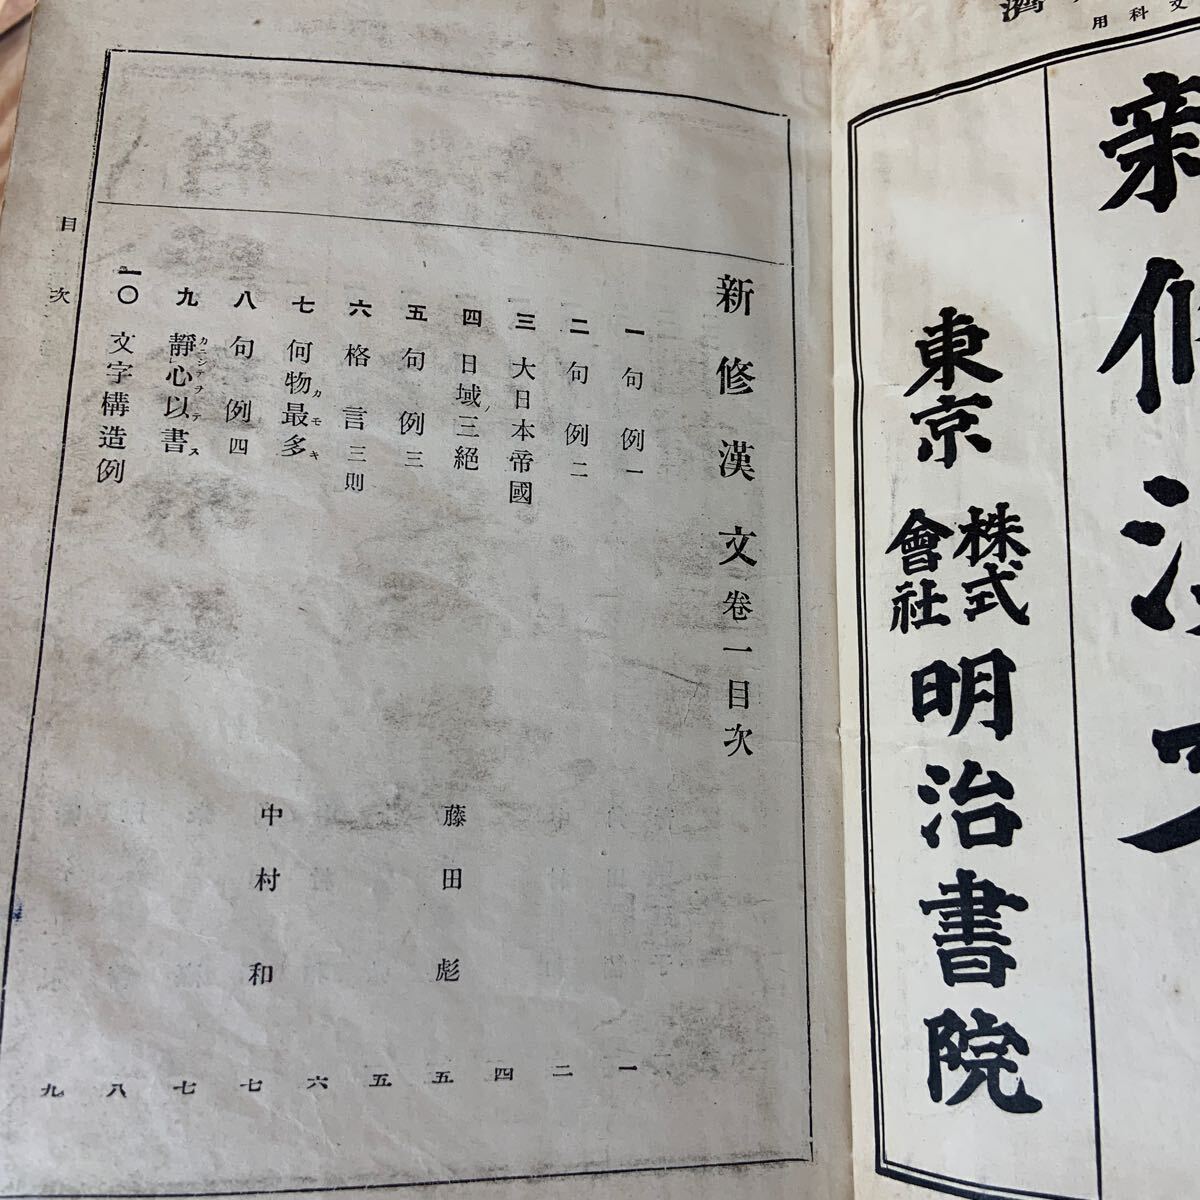 科用
濟
新修漢文
東京
株式會社
明治書院
新修漢文卷一目次
一 句例一 一
二 句例二 二
三 大日本帝國 四
四 日域ノ三絕 藤田彪 五
五 句例三 五
六 格言三則 六
七 何物カ最モ多キ 中村和 七
八 句例四 七
九 靜カニシテ心ヲ以テ書ス 八
一〇 文字構造例 九
目次